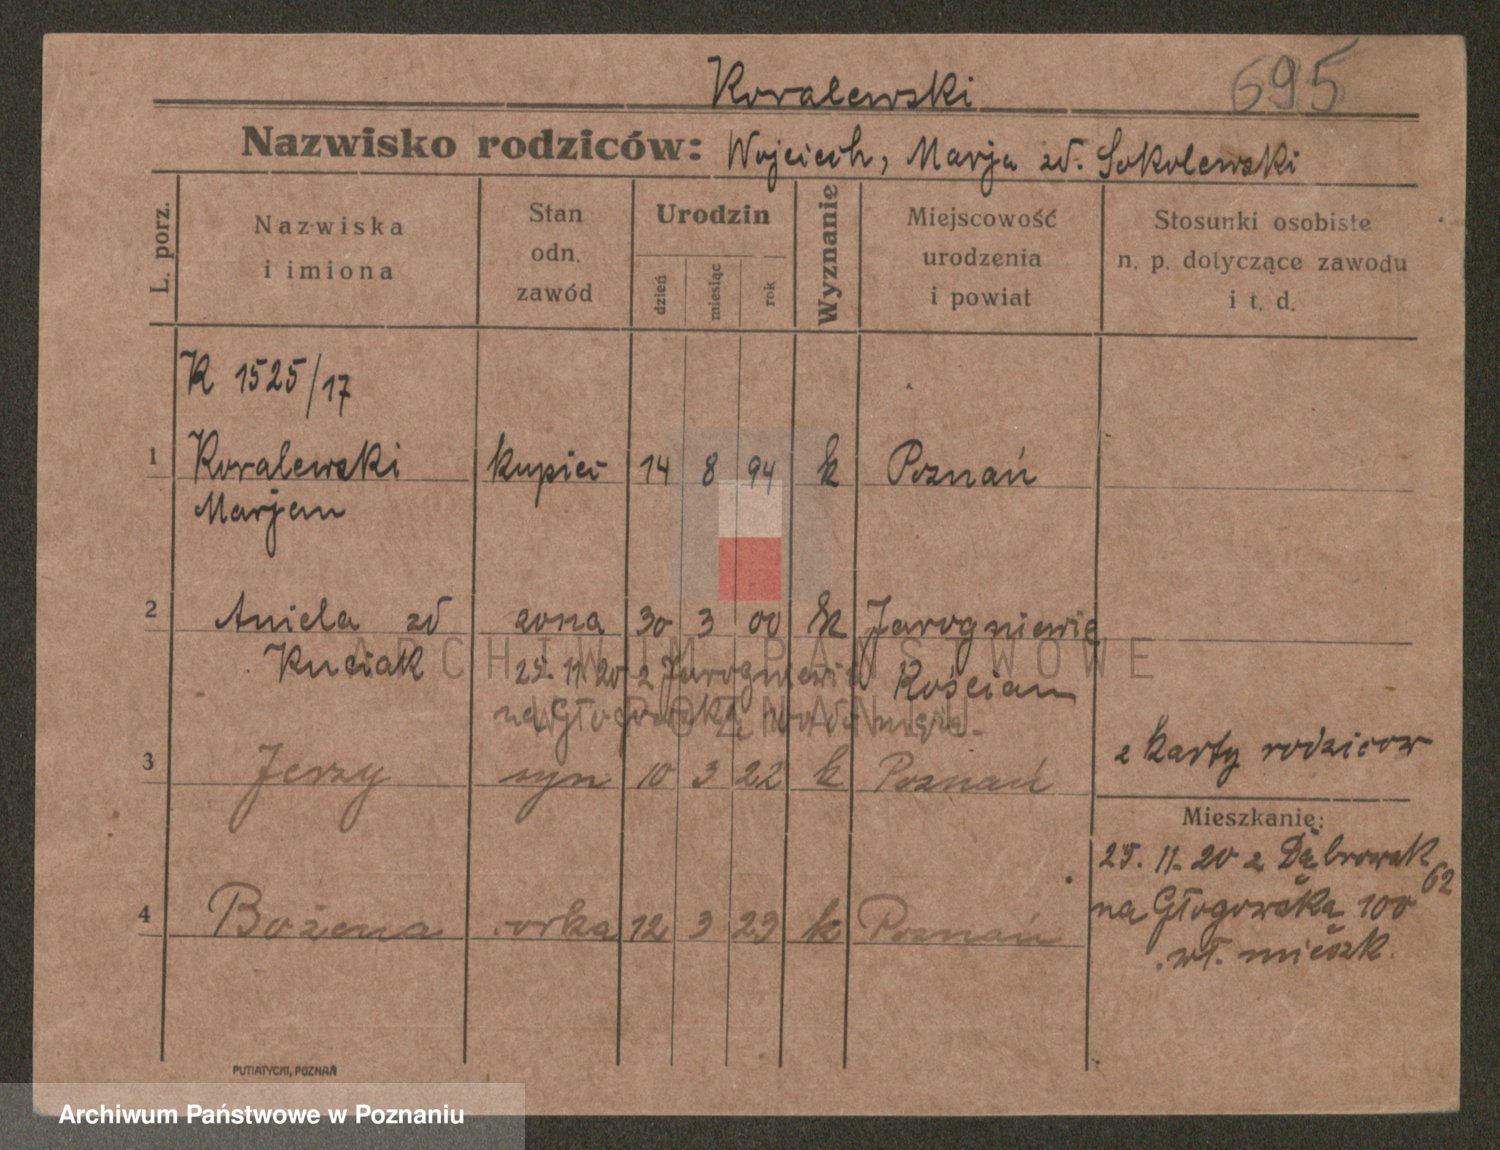 Koralewski 695
Nazwisko rodziców: Wojciech, Marja zd. Sokolewski
L. porz.
Nazwiska i imiona
Stan odn. zawód
Urodzin
dzień miesiąc rok
Wyznanie
Miejscowość urodzenia i powiat
Stosunki osobiste n. p. dotyczące zawodu i t. d.
K 1525/17
1 Koralewski kupiec 14 8 94 k Poznań
Marjan
2 Aniela zd żona 30 3 00 k Jarogniewic
Kuciak 25. 11. 20 z Jarogniewic Kościan
na Głogowską
z karty rodziców
3 Jerzy syn 10 3 22 k Poznań
Mieszkanie:
25. 11. 20 z Dąbrowsk 62
na Głogowska 100
wł. mieszk.
4 Bożena corka 12 3 23 k Poznań
PUTIATYCKI, POZNAŃ
ARCHIWUM PAŃSTWOWE
W POZNANIU
Archiwum Państwowe w Poznaniu